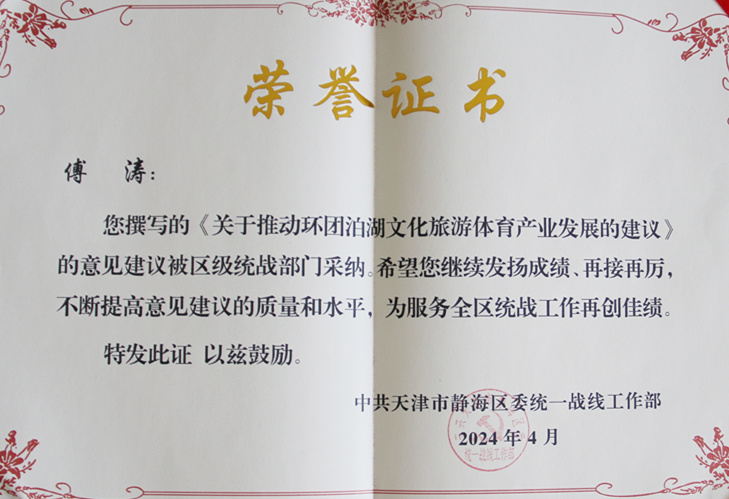 荣誉证书
傅 涛：
您撰写的《关于推动环团泊湖文化旅游体育产业发展的建议》
的意见建议被区级统战部门采纳。希望您继续发扬成绩、再接再厉，
不断提高意见建议的质量和水平，为服务全区统战工作再创佳绩。
特发此证 以兹鼓励。
中共天津市静海区委统一战线工作部
2024 年 4 月
统一战线工作部